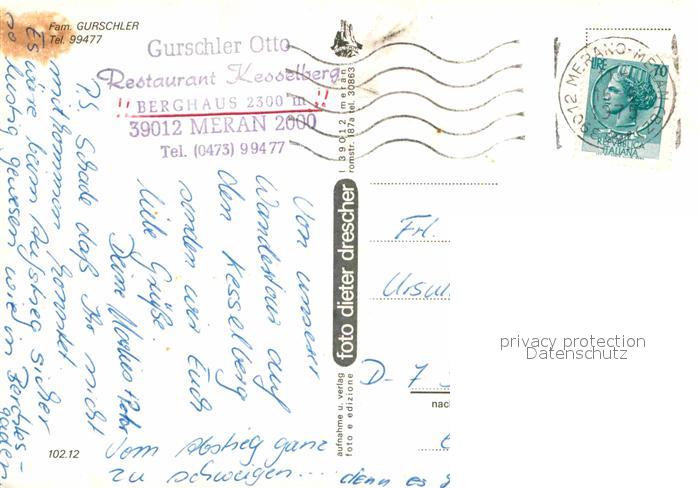 Fam. GURSCHLER
Tel. 99477
Gurschler Otto
Restaurant Kesselberg
!! BERGHAUS 2300 m !!
39012 MERAN 2000
Tel. (0473) 99477
Von unserer
Wandertour auf
den Kesselberg
senden wir Euch
liebe Grüße
Deine
P.S. Schade daß Ihr nicht
mitkommen konntet
Es wäre beim Aufstieg sicher
so lustig gewesen wie in Berchtes-
gaden
vom Abstieg ganz
zu schweigen.... denn es
102.12
foto dieter drescher
I 39012 meran
romstr. 187a tel. 30863
aufnahme u. verlag
foto e edizione
39012 MERANO-MERAN
LIRE 70
REPUBBLICA
ITALIANA
Frl.
Ursul
D-7
nac
privacy protection
Datenschutz